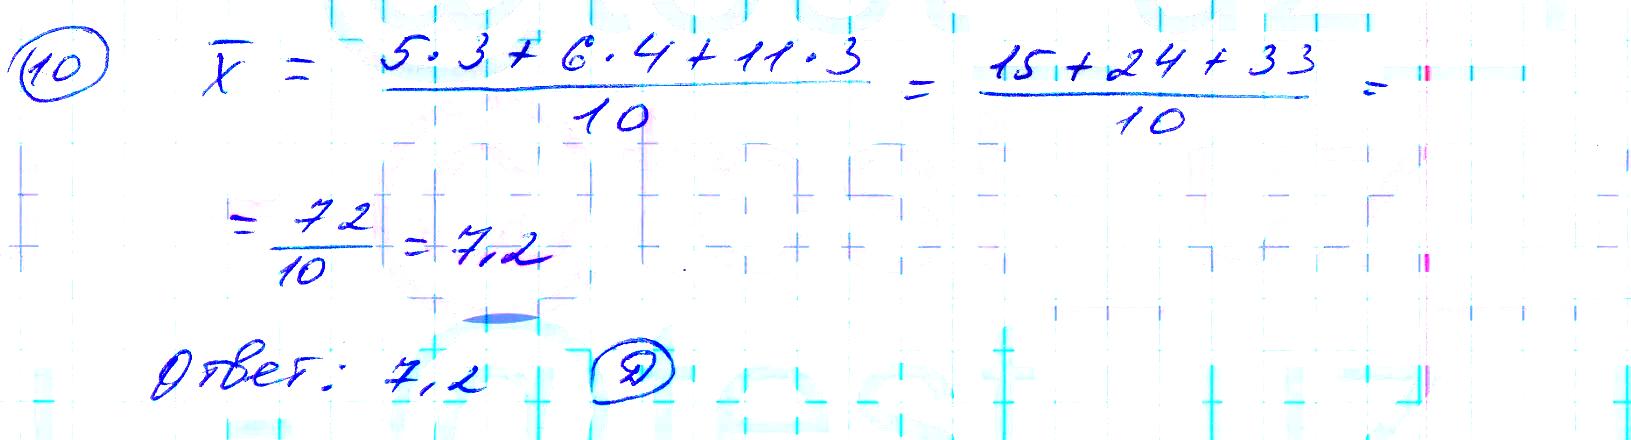 10 x̄ = (5·3+6·4+11·3)/10 = (15+24+33)/10 =
= 72/10 = 7,2
Ответ: 7,2 Д